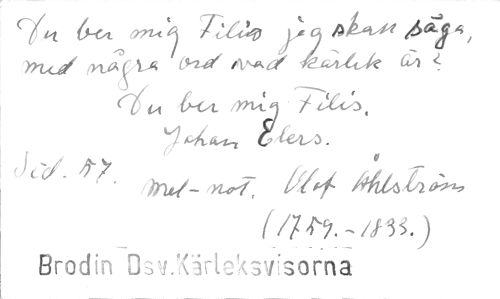 Du ber mig Filis jag skall säga,
med några ord vad kärlek är?
Du ber mig Filis.
Johan Elers.
Sid. 57.
mel-not. Olof Åhlström
(1759.-1833.)
Brodin Dsv.Kärleksvisorna